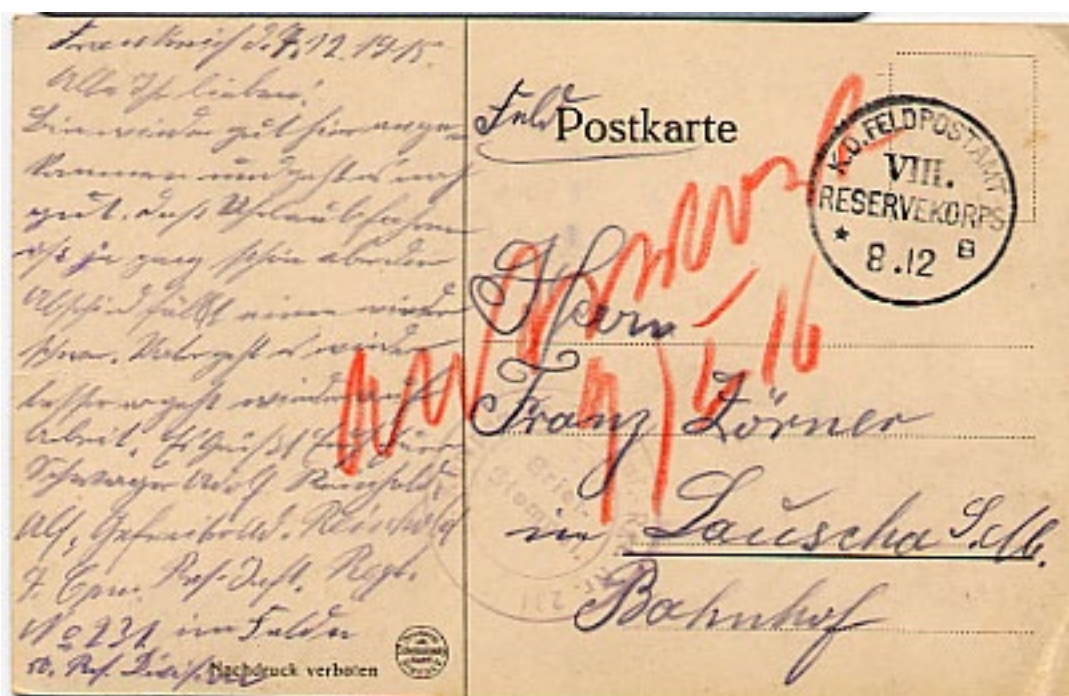 Frankreich d. 7.12.1915.
Alle Ihr lieben!
Bin wieder gut hier ange-
kommen und geht es noch
gut. Daß Urlaubfahren
ist ja ganz schön aber der
Abschied fällt einen wieder
schwer. Vater geht es wieder
besser er geht wieder auf
Arbeit. Es grüßt Euch Euer
Schwager Adolf Reinhold
Abs. Gefreiter Reinhold
7. Comp. Res. Inft. Regt.
No 231 im Felde
50. Res. Division
Nachdruck verboten
Feld Postkarte
K.D. FELDPOSTAMT
VIII.
RESERVEKORPS
* 8.12 B
Herrn
Franz Zörner
in Lauscha S./M.
Bahnhof
Brief
Stempel